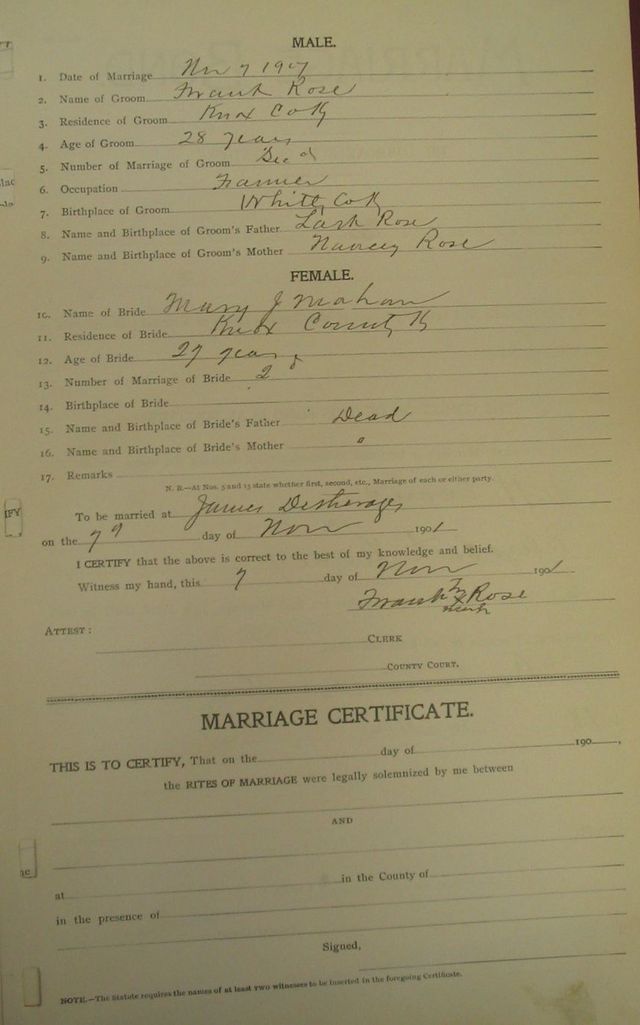 MALE.
1. Date of Marriage Nov 7 1907
2. Name of Groom Frank Rose
3. Residence of Groom Knox Co Ky
4. Age of Groom 28 years
5. Number of Marriage of Groom
6. Occupation Farmer
7. Birthplace of Groom Whitly Co K
8. Name and Birthplace of Groom's Father Lark Rose
9. Name and Birthplace of Groom's Mother Nancey Rose
FEMALE.
10. Name of Bride Mary J Mahan
11. Residence of Bride Knox County K
12. Age of Bride 27 years
13. Number of Marriage of Bride 2
14. Birthplace of Bride
15. Name and Birthplace of Bride's Father Dead
16. Name and Birthplace of Bride's Mother "
17. Remarks
N. B.—At Nos. 5 and 13 state whether first, second, etc., Marriage of each or either party.
To be married at James
on the 7 day of Nov 1901
I CERTIFY that the above is correct to the best of my knowledge and belief.
Witness my hand, this 7 day of Nov 1901
Frank X Rose
mark
ATTEST:
CLERK
COUNTY COURT.
MARRIAGE CERTIFICATE.
THIS IS TO CERTIFY, That on the day of 190 ,
the RITES OF MARRIAGE were legally solemnized by me between
AND
at in the County of
in the presence of
Signed,
NOTE.—The Statute requires the names of at least two witnesses to be inserted in the foregoing Certificate.